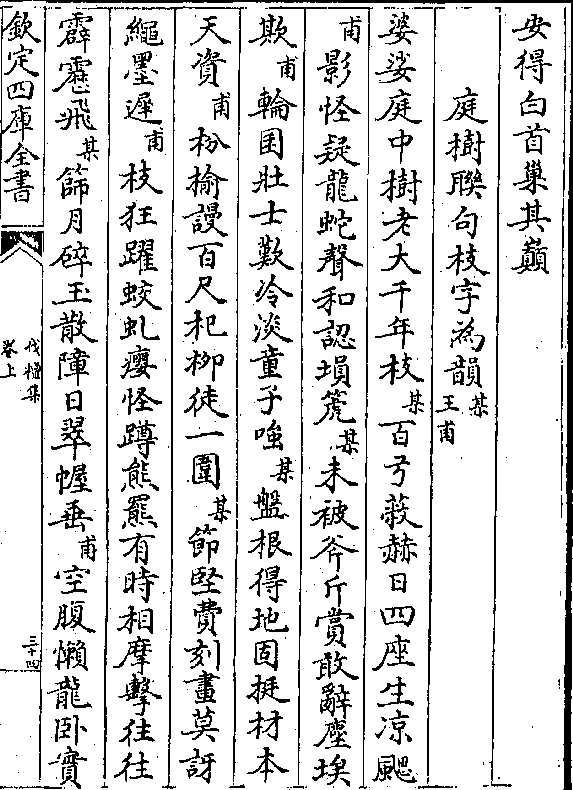 安得白首巢其巔
庭樹聨句枝字為韻某王甫
婆娑庭中樹老大千年枝某百弓蔽赫日四座生凉颸
甫影怪疑龍蛇聲和認塤箎某未被斧斤賞敢辭塵埃
欺甫輪囷壯士歎冷淡童子嗤某盤根得地固挺材本
天資甫枌揄謾百尺杞柳徒一圍某節堅費刻畫莫訝
繩墨遲甫枝狂躍蛟虬癭怪蹲熊羆有時相摩擊往往
霹靂飛某篩月碎玉散障日翠幄垂甫空腹懶龍卧實
欽定四庫全書
伐檀集
卷上
三十四